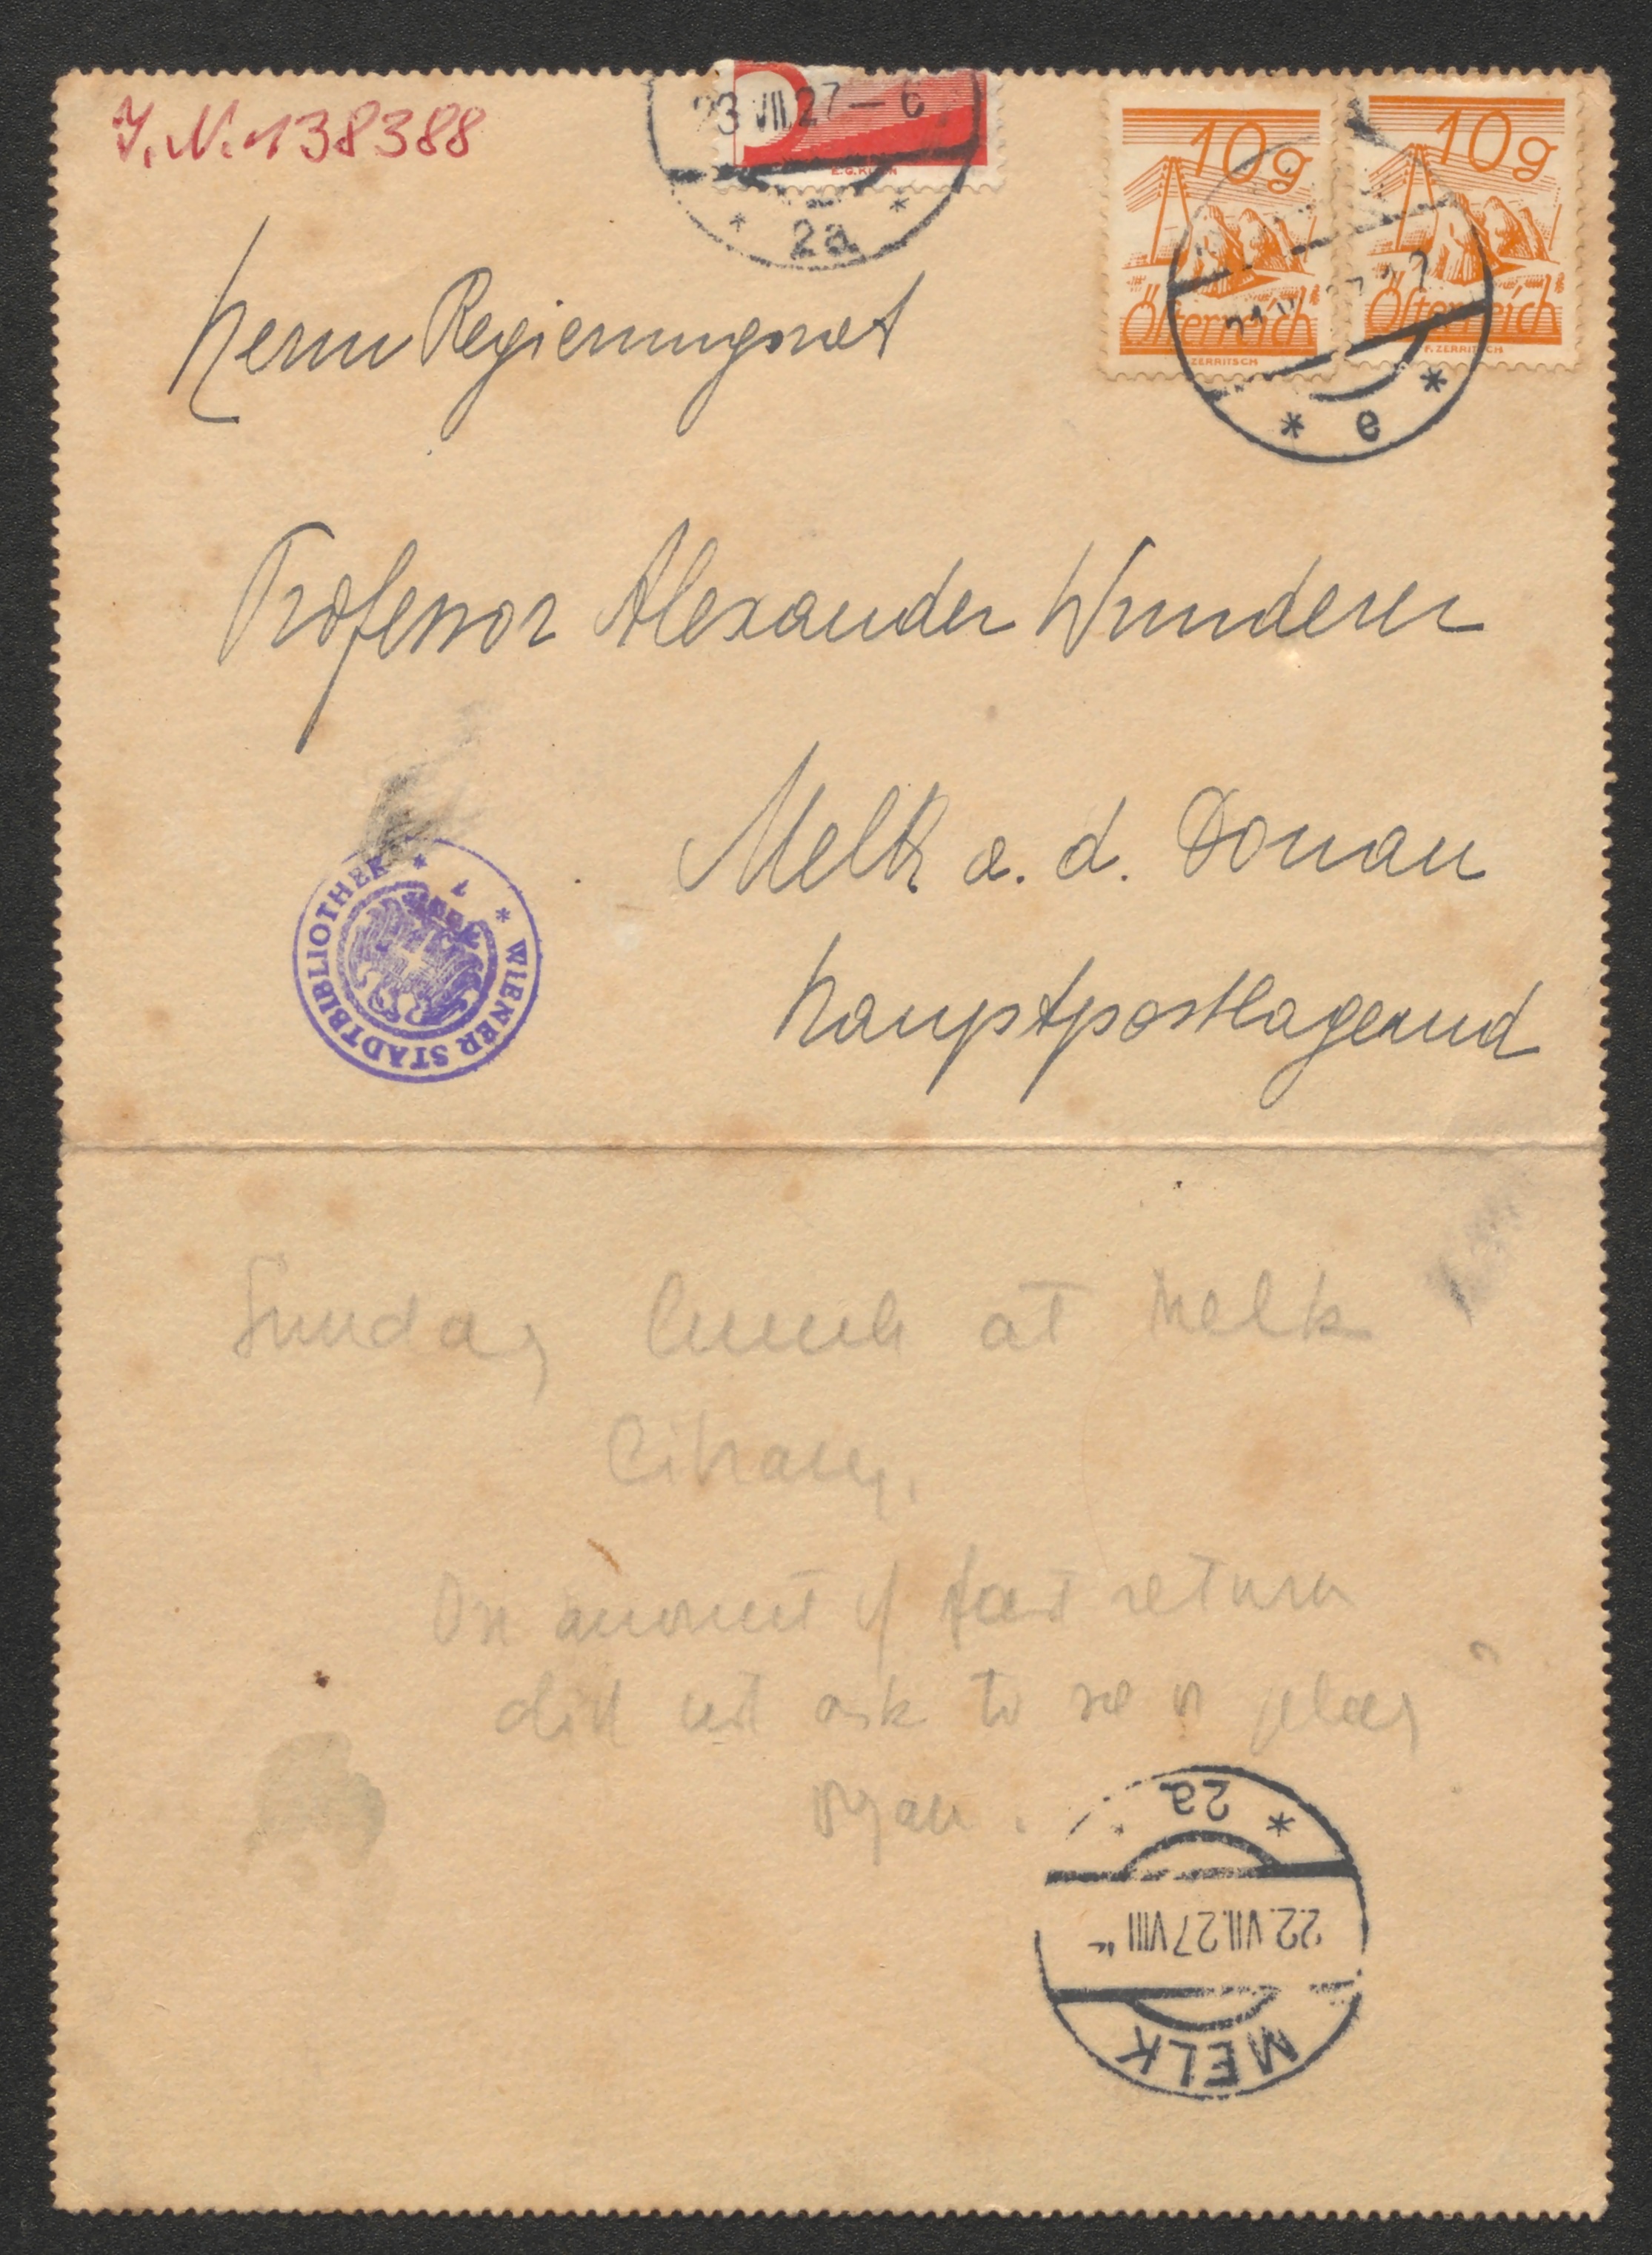 J.N. 138388
23.VII.27—6
* 2a *
E.G.
10g 10g
Österreich Österreich
ZERRITSCH F. ZERRITSCH
* e *
Herrn Regierungsrat
Professor Alexander Wunderer
Melk a. d. Donau
Hauptpostlagernd
* WIENER STADTBIBLIOTHEK *
Sunday lunch at Melk
On account of fast return
did not ask to see or play
organ.
2a *
22.VII.27 VIII
MELK